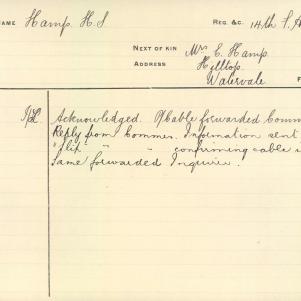 NAME Hamp H.S REG. &C. 14th
NEXT OF KIN Mrs E. Hamp
ADDRESS Hilltop
Watervale
F
Acknowledged. Cable forwarded Comm
Reply from Commrs. Information sent
"slip" " " confirming cable
Same forwarded Inquirer.